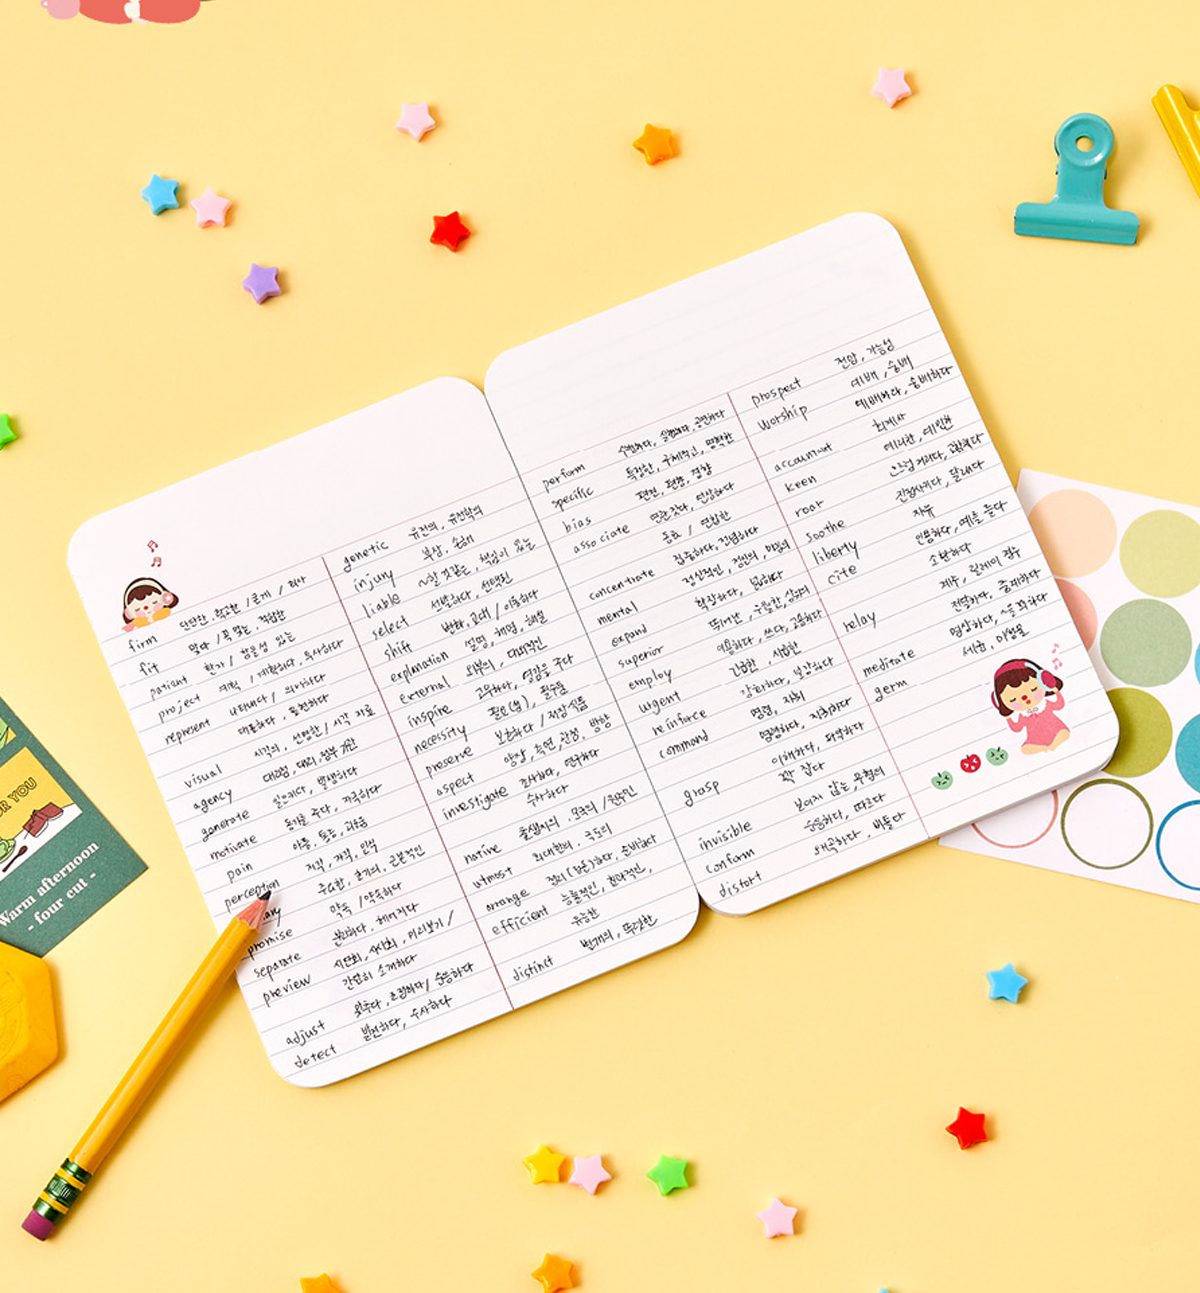 firm 단단한, 확고한 / 굳게 / 회사
fit 맞다 / 꼭 맞는, 적합한
patient 환자 / 참을성 있는
project 계획 / 계획하다, 투사하다
represent 나타내다 / 의미하다
대표하다, 표현하다
visual 시각의, 선명한 / 시각 자료
agency 대리점, 대리, 정부기관
generate 일으키다, 발생하다
motivate 동기를 주다, 자극하다
pain 아픔, 통증, 괴로움
perception 지각, 자각, 인식
주요한, 초기의, 근본적인
promise 약속 / 약속하다
separate 분리하다, 헤어지다
preview 시연회, 시사회, 미리보기 /
간단히 소개하다
adjust 맞추다, 조정하다 / 순응하다
detect 발견하다, 수사하다
genetic 유전의, 유전학의
injury 부상, 손해
liable ~할 것 같은, 책임이 있는
select 선발하다, 선택된
shift 변화, 교대 / 이동하다
explanation 설명, 해명, 해설
external 외부의, 대외적인
inspire 고무하다, 영감을 주다
necessity 필요(성), 필수품
preserve 보존하다 / 저장식품
aspect 양상, 측면, 관점, 방향
investigate 조사하다, 연구하다
수사하다
native 출생지의, 모국의 / 원주민
utmost 최대한의, 극도의
arrange 정리(정돈)하다, 준비하다
efficient 능률적인, 효과적인,
유능한
distinct 별개의, 뚜렷한
perform 수행하다, 실행하다, 공연하다
specific 특정한, 구체적인, 명확한
bias 편견, 편향, 경향
associate 연관짓다, 연상하다
동료 / 연합한
concentrate 집중하다, 전념하다
mental 정신적인, 정신의, 마음의
expand 확장하다, 넓히다
superior 뛰어난, 우월한, 상위의
employ 이용하다, 쓰다, 고용하다
urgent 긴급한, 시급한
reinforce 강화하다, 보강하다
command 명령, 지휘
명령하다, 지휘하다
grasp 이해하다, 파악하다
꽉 잡다
invisible 보이지 않는, 무형의
conform 순응하다, 따르다
distort 왜곡하다, 비틀다
prospect 전망, 가능성
worship 예배, 숭배
예배하다, 숭배하다
accountant 회계사
keen 예리한, 예민한
roar 으르렁거리다, 고함치다
soothe 진정시키다, 달래다
liberty 자유
cite 인용하다, 예를 들다
소환하다
relay 계주, 릴레이 경주
전달하다, 중계하다
meditate 명상하다, ~을 꾀하다
germ 세균, 미생물
OR YOU
Warm afternoon
- four cut -